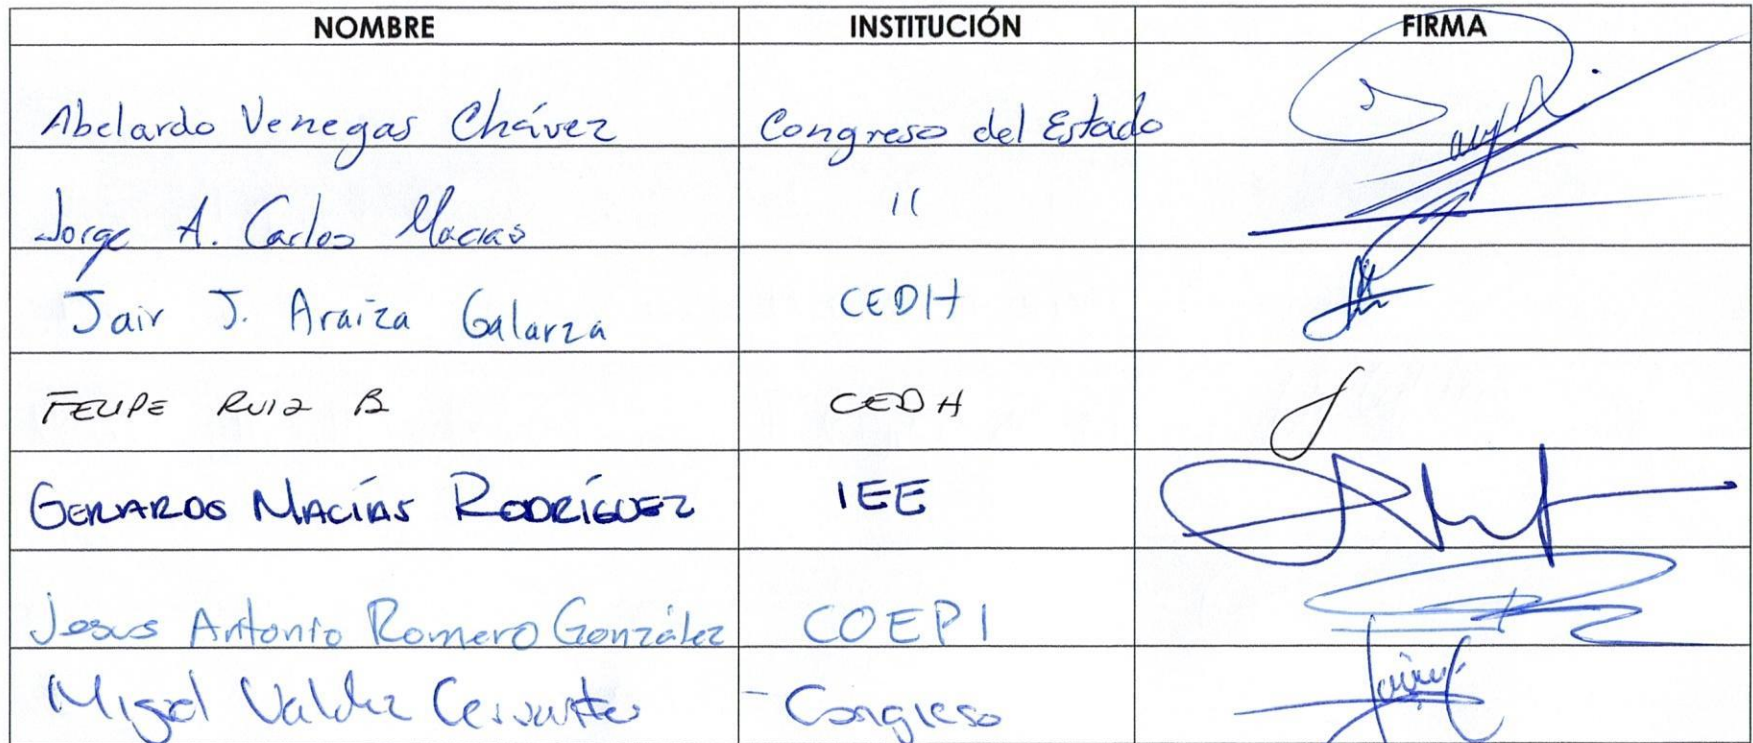 NOMBRE INSTITUCIÓN FIRMA
Abelardo Venegas Chávez Congreso del Estado
Jorge A. Carlos Macias 11
Jair J. Araiza Galarza CEDH
FELIPE RUIZ B CEDH
GERARDO MACÍAS RODRÍGUEZ IEE
Jesus Antonio Romero González COEPI
Miguel Valdez Cervantes - Congreso